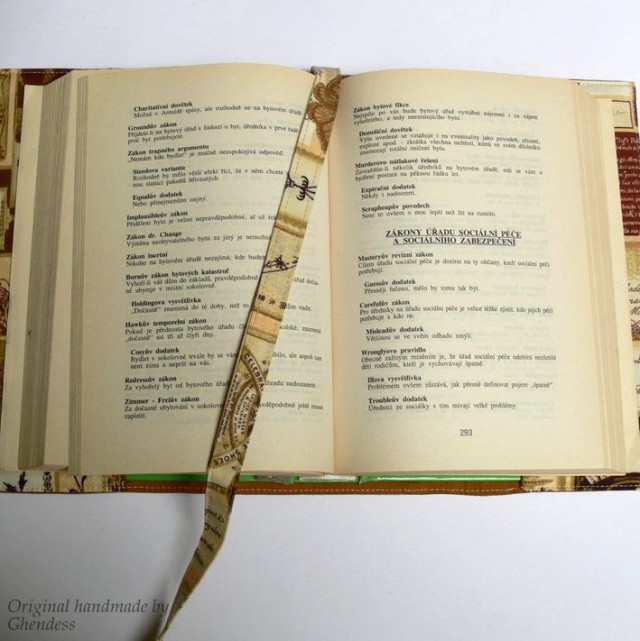 Charitativní dovětek
Možná v Armádě spásy, ale rozhodně ne na bytovém úřadě.
Groundův zákon
Přijdeš-li na bytový úřad s žádostí o byt, úředníka v prvé řadě
proč byt potřebujete.
Zákon trapného argumentu
„Nemám kde bydlet" je značně neuspokojivá odpověď.
Steedova varianta
Rozhodně by měla větší efekt říci, že v něm chcete
nou stanici pokojů
Equalův dodatek
Nebo přinejmenším stejný
Implausibleův zákon
Přidělení bytu je velmi nepravděpodobné, ať už
Zákon dr. Change
Výměna neobyvatelného bytu za jiný je nemožná
Zákon inertní
Nikoho na bytovém úřadě nezajímá, kde budete
Burnův zákon bytových katastrof
Vyhoří-li vám dům do základů, pravděpodobně
ně ubytuje v místní sokolovně.
Holdingova vysvětlivka
„Dočasně" znamená do té doby, než to dům vaši.
Hawkův temporelní zákon
Pokud je přednosta bytového úřadu člen sokolské, znamená
„dočasně" asi tři až čtyři dny.
Conyův dodatek
Bydlet v sokolovně trvale by se vám líbilo, ale spát tam
není zonа a neprší na vás.
Redressův zákon
Za vyhořelý byt od bytového úřadu náhradu nedostanete.
Zimmer - Freiův zákon
Za dočasné ubytování v sokolovně pravděpodobně ještě musíte
zaplatit.
Zákon bytové fikce
Nejspíše po vás bude bytový úřad vymáhat nájemné i za nájem
vyhořelého, a tedy neexistujícího bytu.
Demoliční dovětek
Výše uvedené se vztahuje i na eventuality jako povodeň, zřícení,
exploze apod. - zkrátka všechna neštěstí, která ve svém důsledku
znamenají totální zničení bytu.
Murderovo nátlakové řešení
Zavraždíte-li několik úředníků na bytovém úřadě, stát se vám o
bydlení postará na pěknou řádku let.
Expirační dodatek
Někdy i nadosmrti.
Scrapheapův povzdech
Není to ovšem o moc lepší než žít na rumišti.
ZÁKONY ÚŘADU SOCIÁLNÍ PÉČE
A SOCIÁLNÍHO ZABEZPEČENÍ
Masteryův revizní zákon
Cílem úřadu sociální péče je dozírat na ty občany, kteří sociální péči
potřebují.
Guessův dodatek
Přesněji řečeno, mělo by tomu tak být.
Carefulův zákon
Pro úředníky na úřadu sociální péče je velice těžké zjistit, kdo jejich péči
potřebuje a kdo ne.
Misleadův dodatek
Většinou se ve svém odhadu zmýlí.
Wronglyovo pravidlo
Obecně zažitým míněním je, že úřad sociální péče odebírá nezletilé
děti rodičům, kteří je vychovávají špatně.
Illova vysvětlivka
Problémem ovšem zůstává, jak přesně definovat pojem „špatně".
Troubleův dodatek
Úředníci ze sociálky s tím mívají velké problémy.
293
Original handmade by
Ghendess